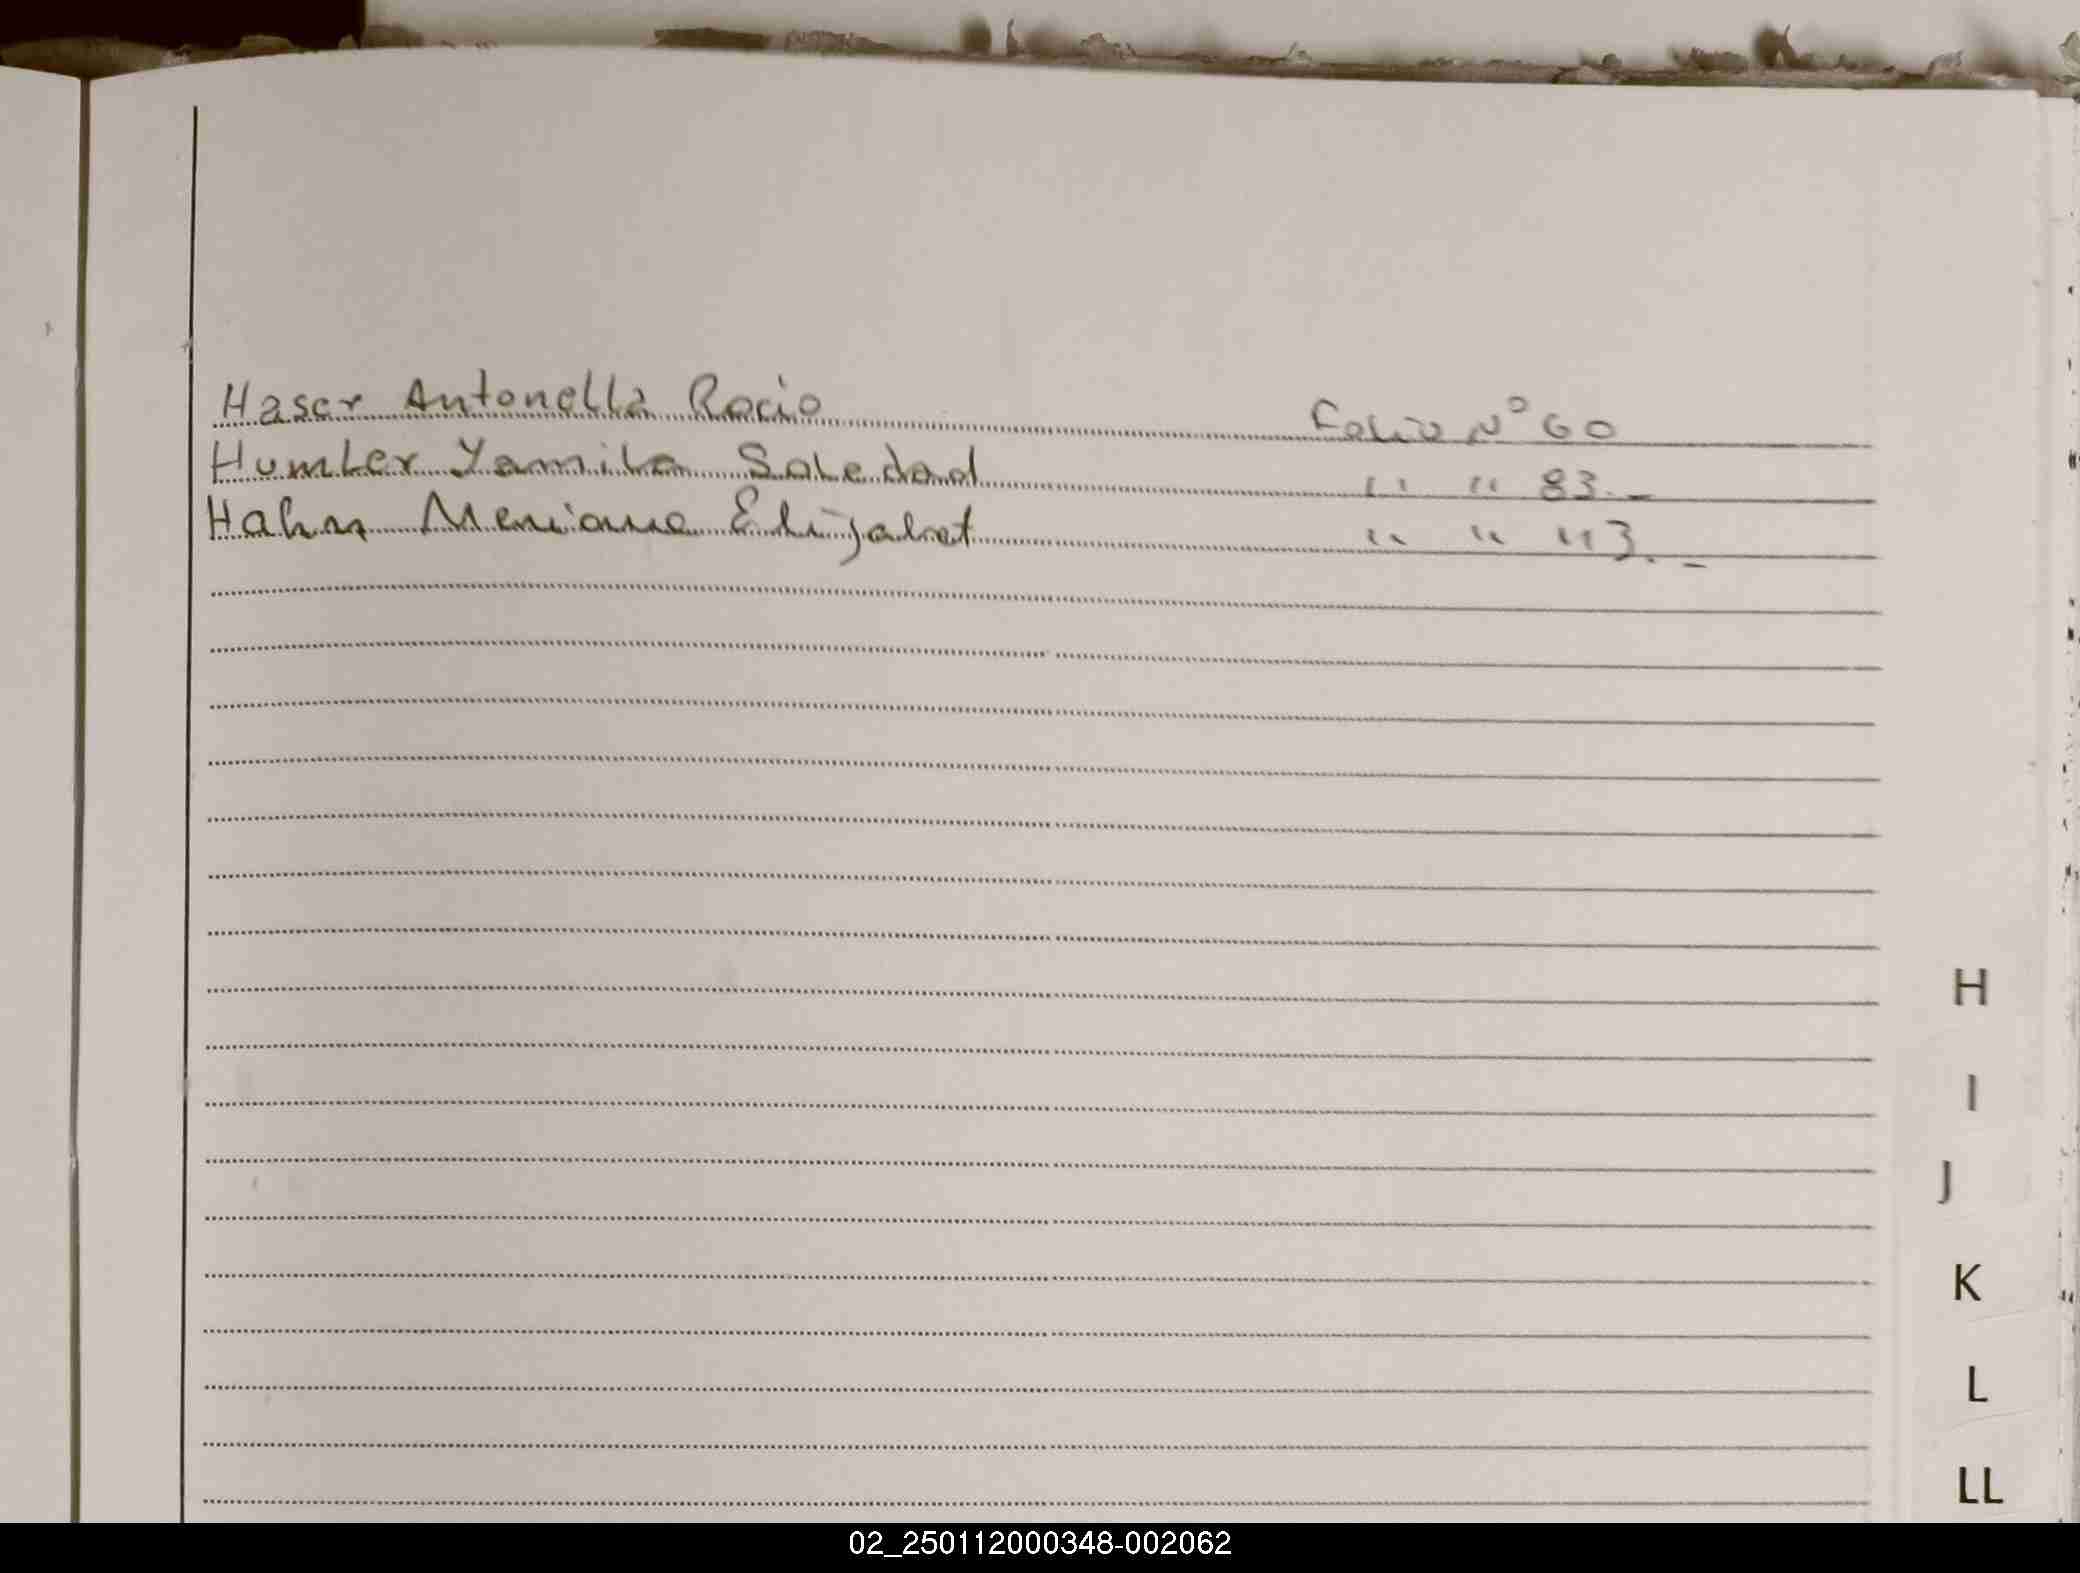 Haser Antonella Rocio Folio Nº 60
Humler Yamila Soledad " " 83.-
Hahn Mariana Elizabet " " 113.-
H
I
J
K
L
LL
02_250112000348-002062